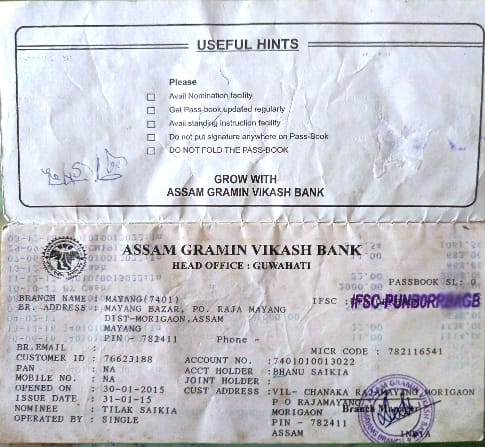 USEFUL HINTS
Please
Avail Nomination facility
Get Pass-book updated regularly
Avail standing instruction facility
Do not put signature anywhere on Pass-Book
DO NOT FOLD THE PASS-BOOK
GROW WITH
ASSAM GRAMIN VIKASH BANK
ASSAM GRAMIN VIKASH BANK
HEAD OFFICE : GUWAHATI
PASSBOOK SL: 0
BRANCH NAME: MAYANG(7401) IFSC : IFSC-PUNB0RRBAGB
BR. ADDRESS: MAYANG BAZAR, PO. RAJA MAYANG
DIST-MORIGAON,ASSAM
MAYANG
PIN - 782411 Phone -
BR.EMAIL : MICR CODE : 782116541
CUSTOMER ID : 76623188 ACCOUNT NO. :7401010013022
PAN : NA ACCT HOLDER :BHANU SAIKIA
MOBILE NO. : NA JOINT HOLDER :
OPENED ON : 30-01-2015 CUST ADDRESS :VIL- CHANAKA RAJAMAYANG,MORIGAON
ISSUE DATE : 31-01-15 P O RAJAMAYANG
NOMINEE : TILAK SAIKIA MORIGAON Branch Manager
OPERATED BY : SINGLE PIN - 782411
ASSAM